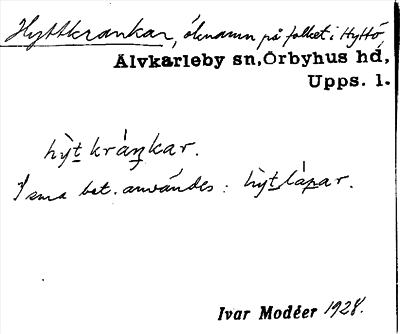 Hyttkrankar, öknamn på folket i Hyttö,
Älvkarleby sn, Örbyhus hd,
Upps. l.
hy̆t kráŋkar.
I sma bet. användes: hy̆t lápar.
Ivar Modéer 1928.